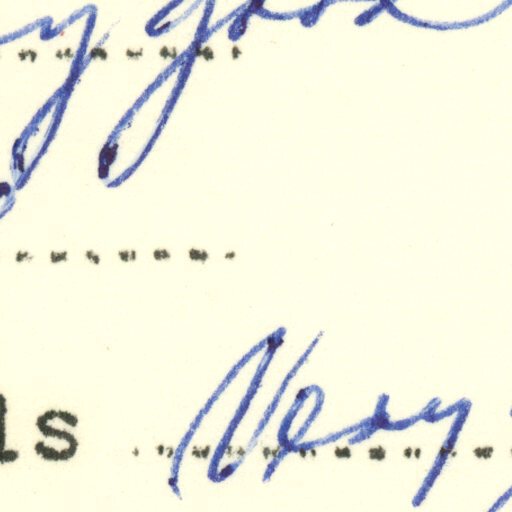 y good
ls Very